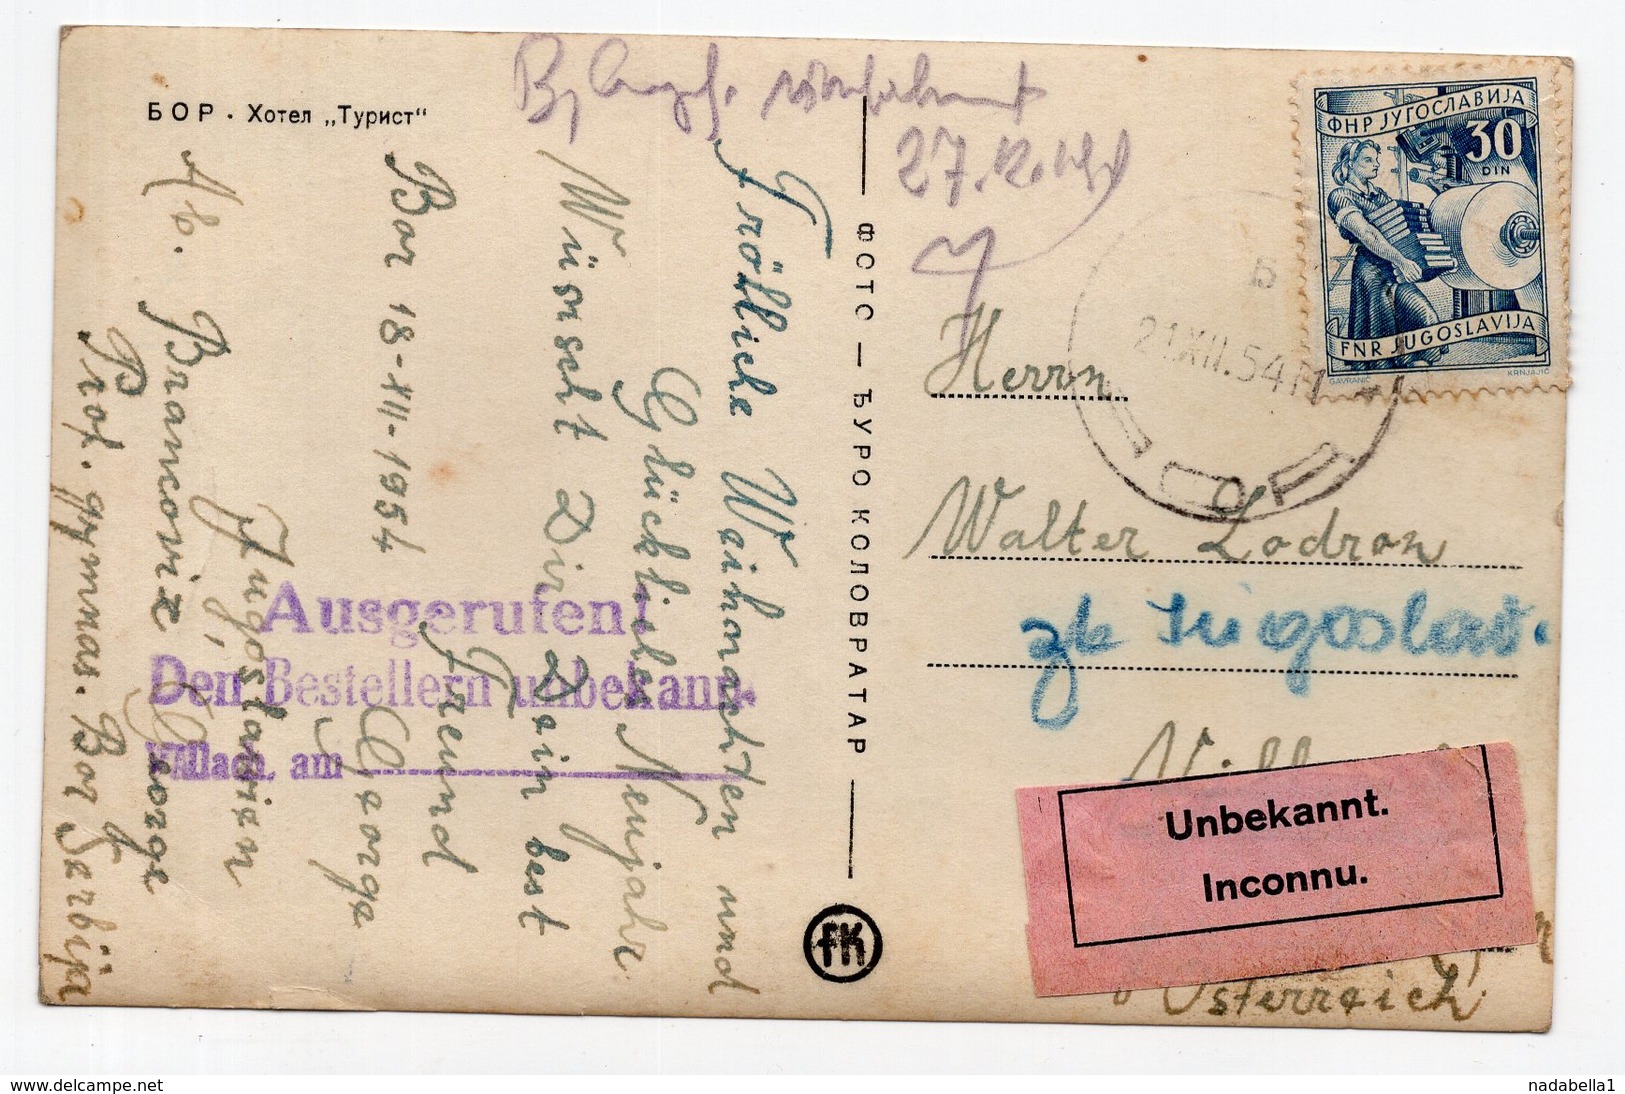 БОР · Хотел „Турист“
27.12.
Fröhliche Waihnachten und
Glückliches Neujahr
Wünscht Dir Dein best
Freund
George
Bor 18-XII-1954
Ab. Brancoviz George
Jugoslavien
Prof. gymnas. Bor Serbija
Ausgerufen!
Den Bestellern unbekannt
Villach, am
ФОТО — ЂУРО КОЛОВРАТАР
FK
ФНР ЈУГОСЛАВИЈА
30
DIN
FNR JUGOSLAVIJA
GAVRANIĆ
KRNJAJIĆ
Б
21.XII.54
Herrn
Walter Lodron
zk Jugoslav.
Unbekannt.
Inconnu.
Österreich
www.delcampe.net
nadabella1